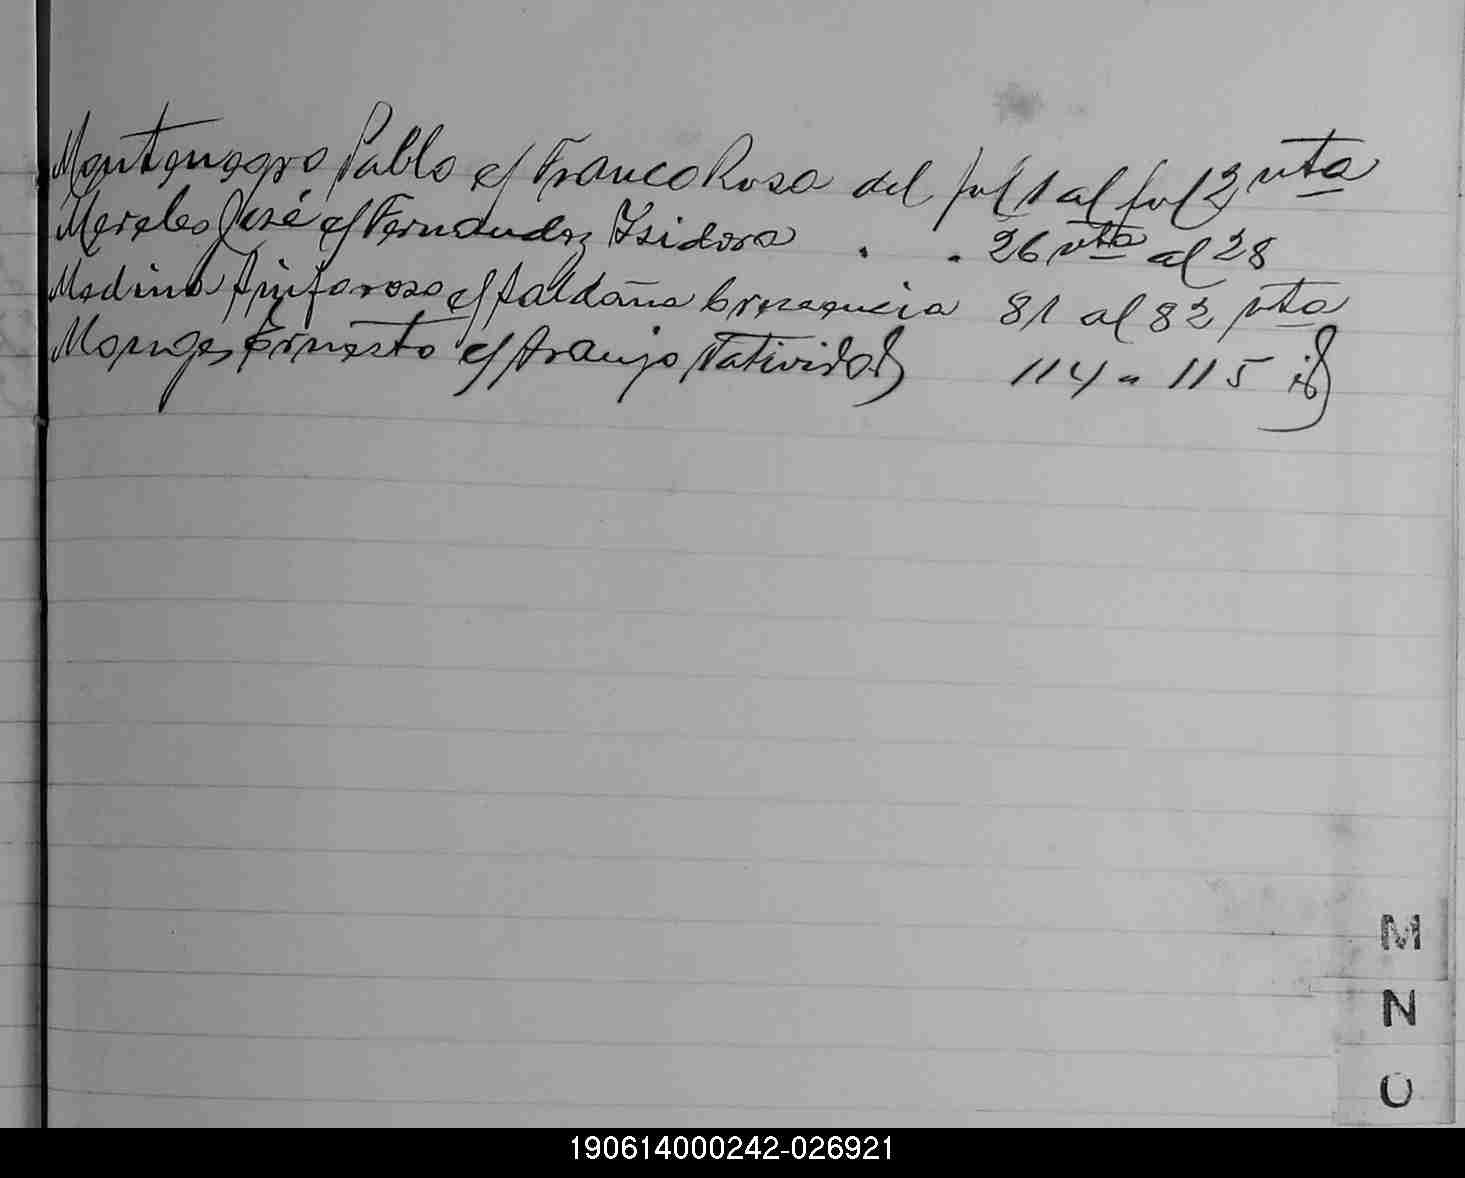 Montenegro Pablo c/ Franco Rosa del fol 1 al fol 2 vta
Mereles José c/ Fernandez Ysidora . . 26 vta al 28
Medina Sinforoso c/ Saldaña 81 al 82 vta
Monges Ernesto c/ Araujo Natividad 114 " 115
M
N
O
190614000242-026921